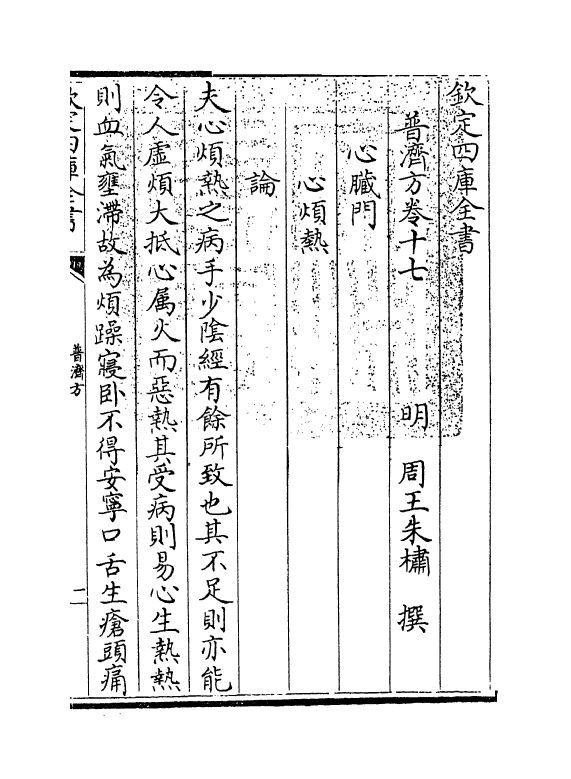 欽定四庫全書
普濟方卷十七 明 周王朱橚 撰
心臟門
心煩熱
論
夫心煩熱之病手少陰經有餘所致也其不足則亦能
令人虛煩大抵心属火而惡熱其受病則易心生熱熱
則血氣壅滯故為煩躁寢卧不得安寧口舌生瘡頭痛
欽定四庫全書
普濟方
二